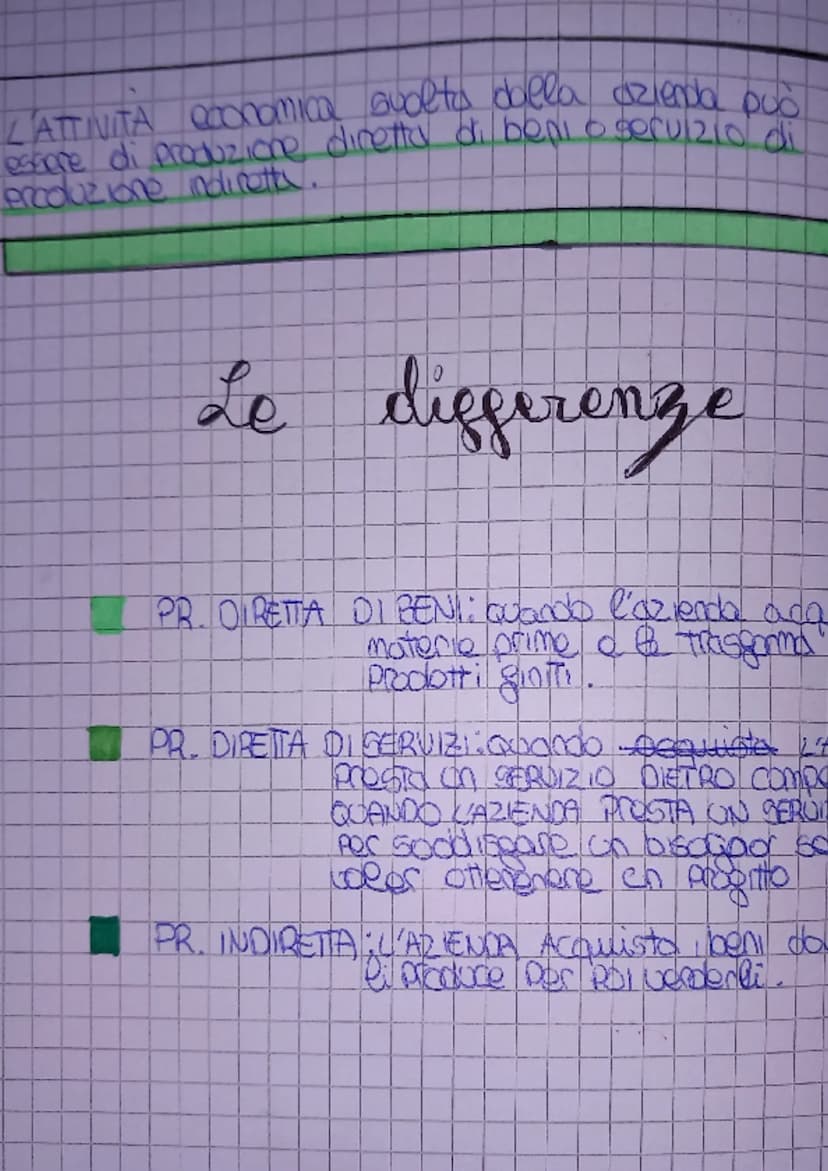 L'ATTIVITÀ economica svolta dalla azienda può
essere di produzione diretta di beni o servizio di
produzione indiretta.
Le differenze
PR. DIRETTA DI BENI: quando l'azienda acq
materie prime e le trasforma
prodotti finiti.
PR. DIRETTA DI SERVIZI: quando acquista L'A
presta un SERVIZIO DIETRO comp
QUANDO L'AZIENDA PRESTA UN SERVI
per soddisfare un bisogno
voler un profitto
PR. INDIRETTA: L'AZIENDA Acquista i beni da
li produce per poi venderli.